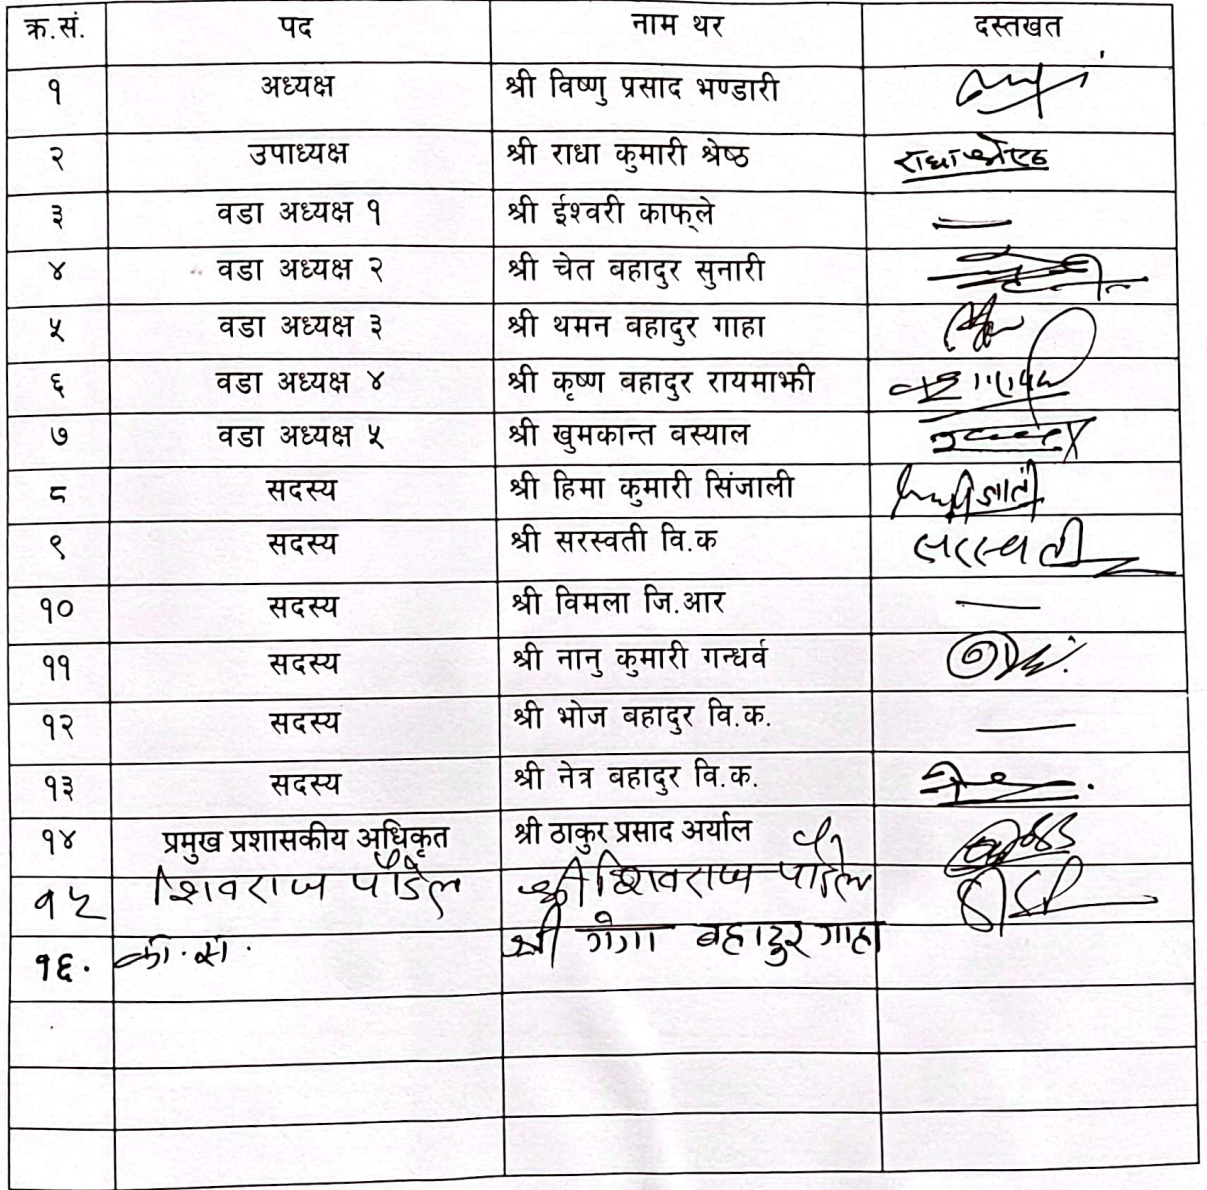 क्र.सं. पद नाम थर दस्तखत
१ अध्यक्ष श्री विष्णु प्रसाद भण्डारी
२ उपाध्यक्ष श्री राधा कुमारी श्रेष्ठ राधा श्रेष्ठ
३ वडा अध्यक्ष १ श्री ईश्वरी काफ्ले —
४ वडा अध्यक्ष २ श्री चेत बहादुर सुनारी
५ वडा अध्यक्ष ३ श्री थमन बहादुर गाहा
६ वडा अध्यक्ष ४ श्री कृष्ण बहादुर रायमाझी
७ वडा अध्यक्ष ५ श्री खुमकान्त वस्याल
८ सदस्य श्री हिमा कुमारी सिंजाली
९ सदस्य श्री सरस्वती वि.क सरस्वती
१० सदस्य श्री विमला जि.आर —
११ सदस्य श्री नानु कुमारी गन्धर्व
१२ सदस्य श्री भोज बहादुर वि.क. —
१३ सदस्य श्री नेत्र बहादुर वि.क.
१४ प्रमुख प्रशासकीय अधिकृत श्री ठाकुर प्रसाद अर्याल
१५ शिवराज पौडेल श्री शिवराज पौडेल
१६. का.स. श्री गंगा बहादुर गाहा